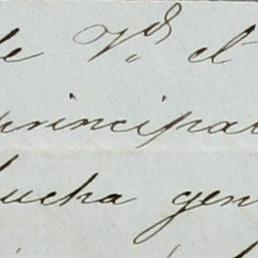 de Vd. el
principal
mucha gen